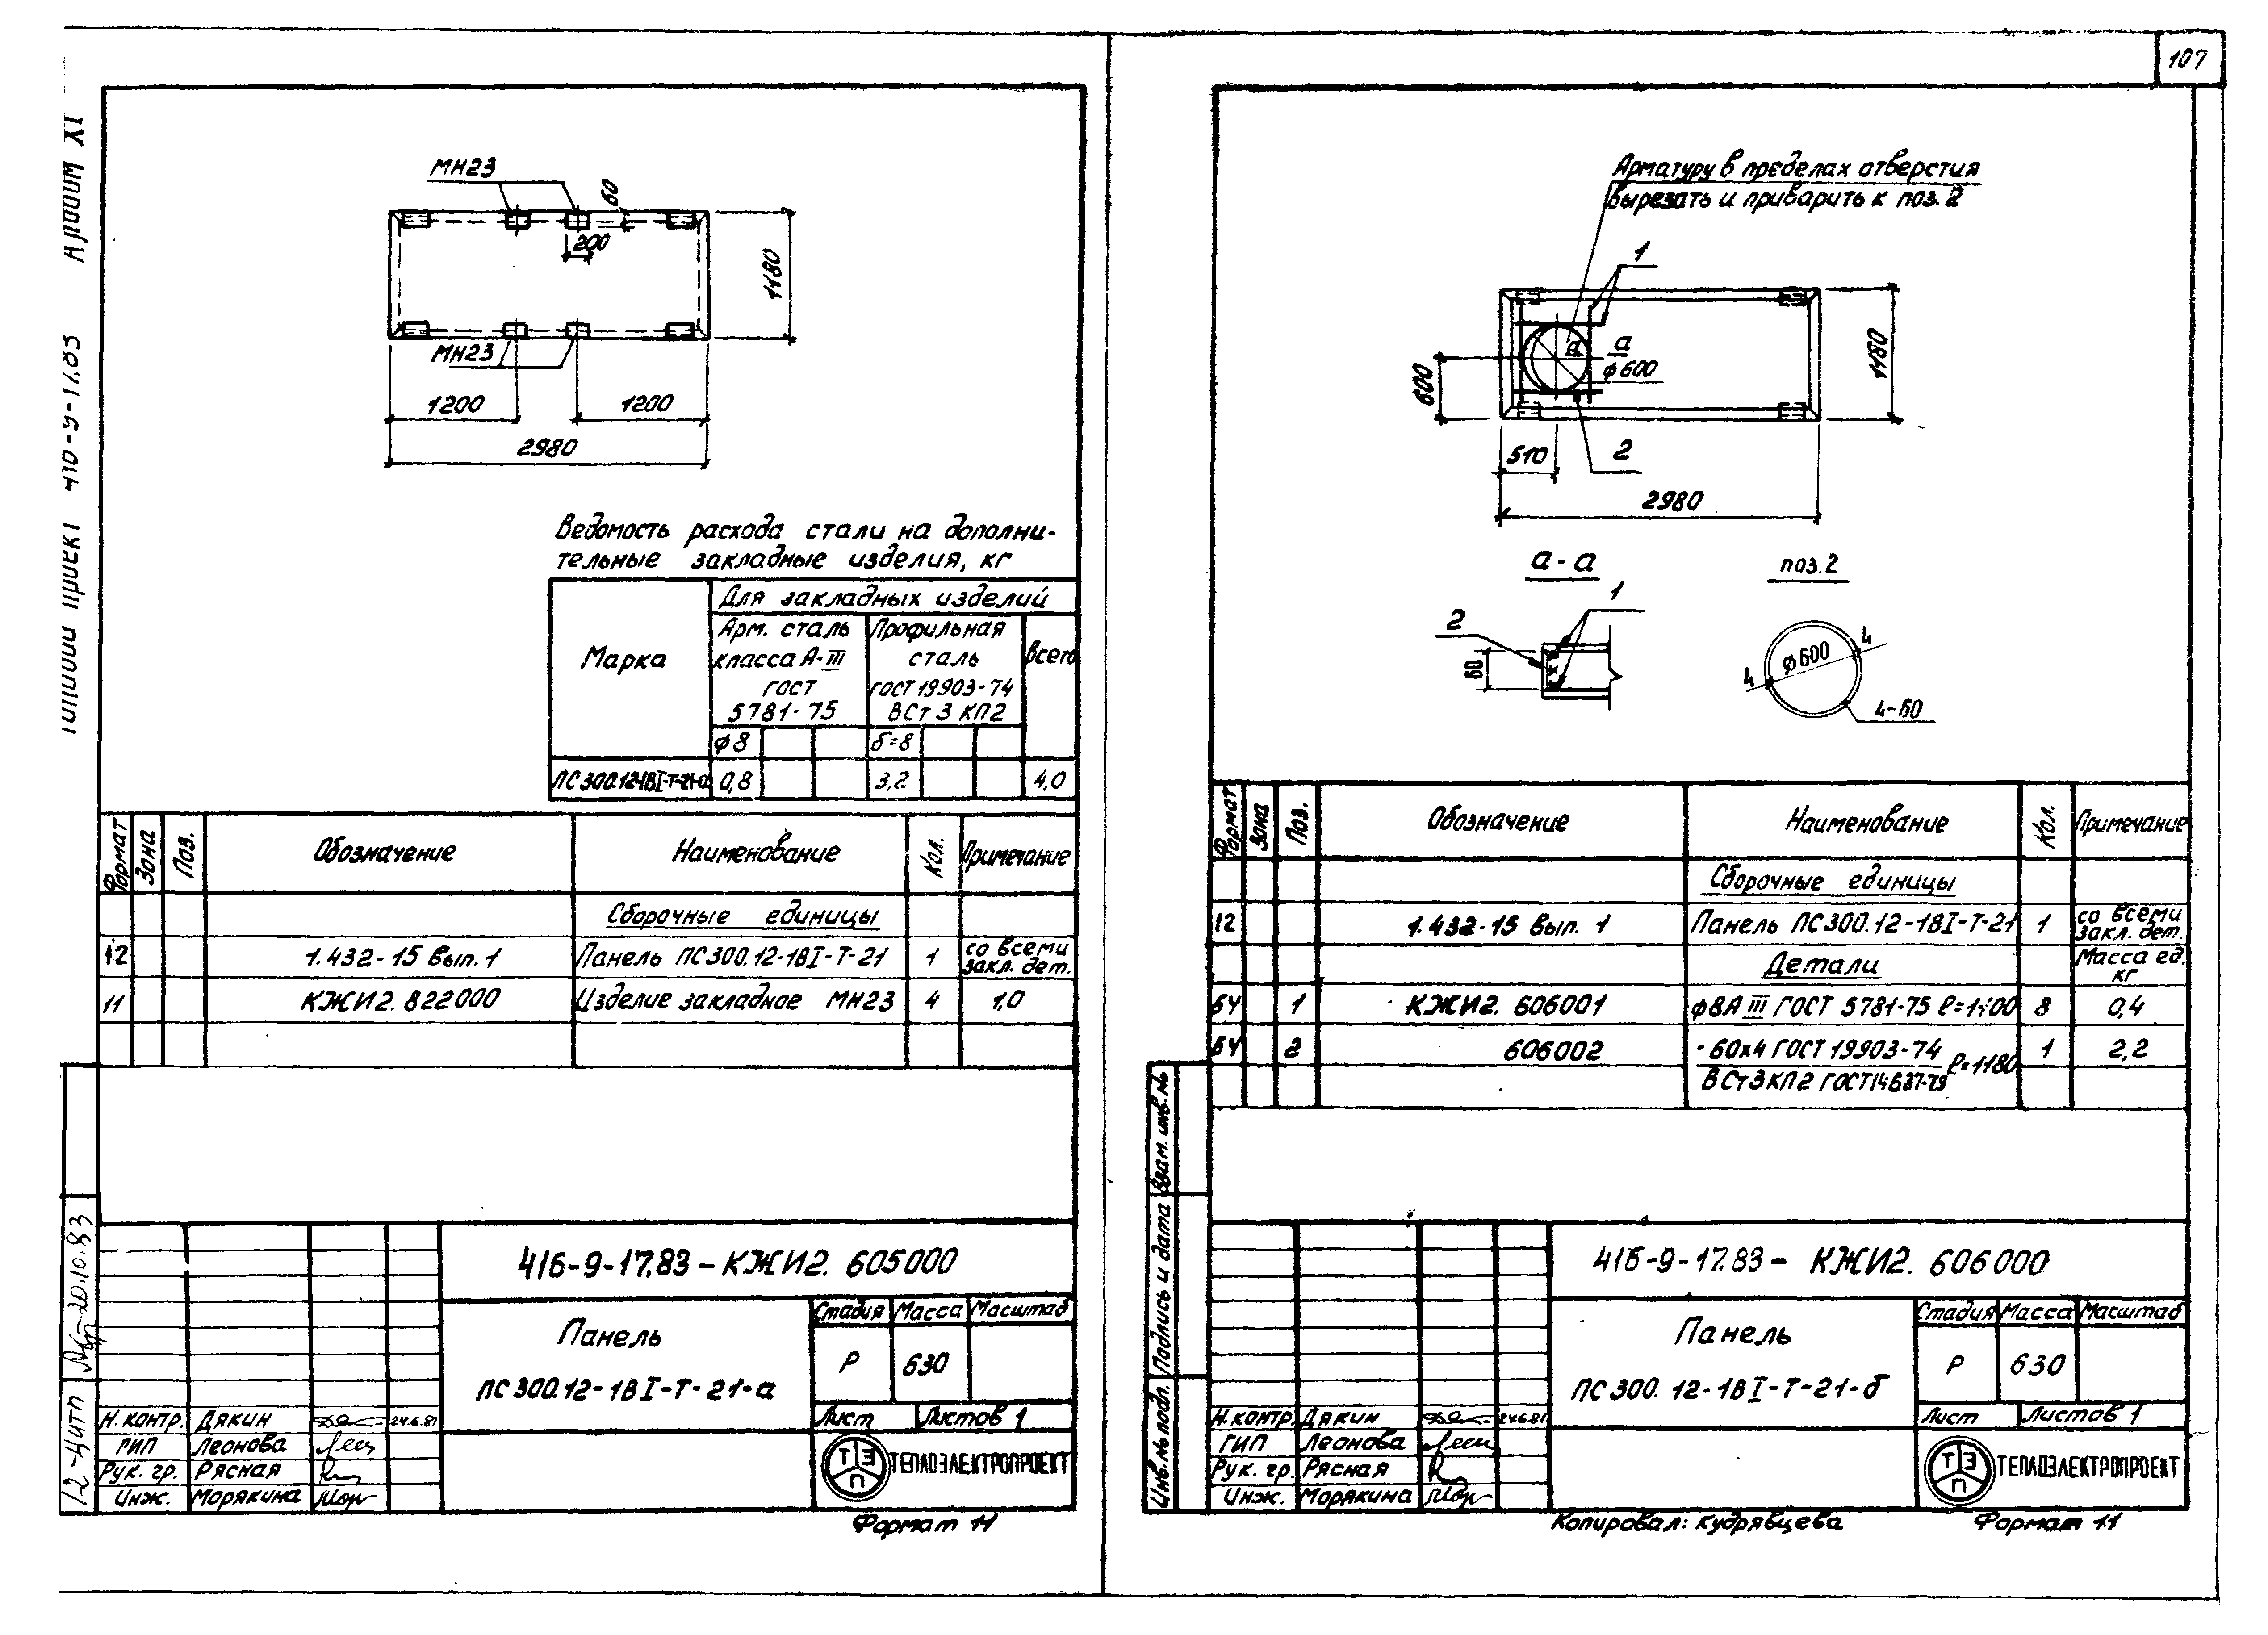 107
Альбом XI
МН23
60
200
1180
МН23
1200
1200
2980
Ведомость расхода стали на дополни-
тельные закладные изделия, кг
Марка
Для закладных изделий
Арм. сталь
класса А-III
ГОСТ
5781-75
Профильная
сталь
ГОСТ 19903-74
ВСт 3 КП2
Всего
ф8
δ=8
ПС300.12-1ВI-Т-21-а
0,8
3,2
4,0
Формат
Зона
Поз.
Обозначение
Наименование
Кол.
Примечание
Сборочные единицы
12
1.432-15 Вып.1
Панель ПС300.12-1ВI-Т-21
1
со всеми
закл. дет.
11
КЖИ2. 822000
Изделие закладное МН23
4
1,0
20.10.83
12 - ЦИТП
416-9-17.83 - КЖИ2. 605000
Панель
ПС300.12-1ВI-Т-21-а
Стадия
Масса
Масштаб
Р
630
Лист
Листов 1
Н.контр. Дякин 24.6.81
ГИП Леонова
Рук. гр. Рясная
Инж. Морякина
ТЭП
ТЕПЛОЭЛЕКТРОПРОЕКТ
Формат 11
Арматуру в пределах отверстия
вырезать и приварить к поз. 2
1
а
а
ф600
1180
600
510
2
2980
а-а
поз.2
1
2
60
4
ф600
4
4-60
Формат
Зона
Поз.
Обозначение
Наименование
Кол.
Примечание
Сборочные единицы
12
1.432-15 Вып. 1
Панель ПС300.12-1ВI-Т-21
1
со всеми
закл. дет.
Детали
Масса ед.
кг
БЧ
1
КЖИ2. 606001
ф8А III ГОСТ 5781-75
8
0,4
БЧ
2
606002
-60х4 ГОСТ 19903-74
ВСт3КП2 ГОСТ14637-79
ℓ=1180
1
2,2
Взам. инв. №
Подпись и дата
Инв. № подл.
416-9-17.83 - КЖИ2. 606000
Панель
ПС300.12-1ВI-Т-21-б
Стадия
Масса
Масштаб
Р
630
Лист
Листов 1
Н.контр. Дякин 24.6.81
ГИП Леонова
Рук. гр. Рясная
Инж. Морякина
ТЭП
ТЕПЛОЭЛЕКТРОПРОЕКТ
Копировал: Кудрявцева
Формат 11